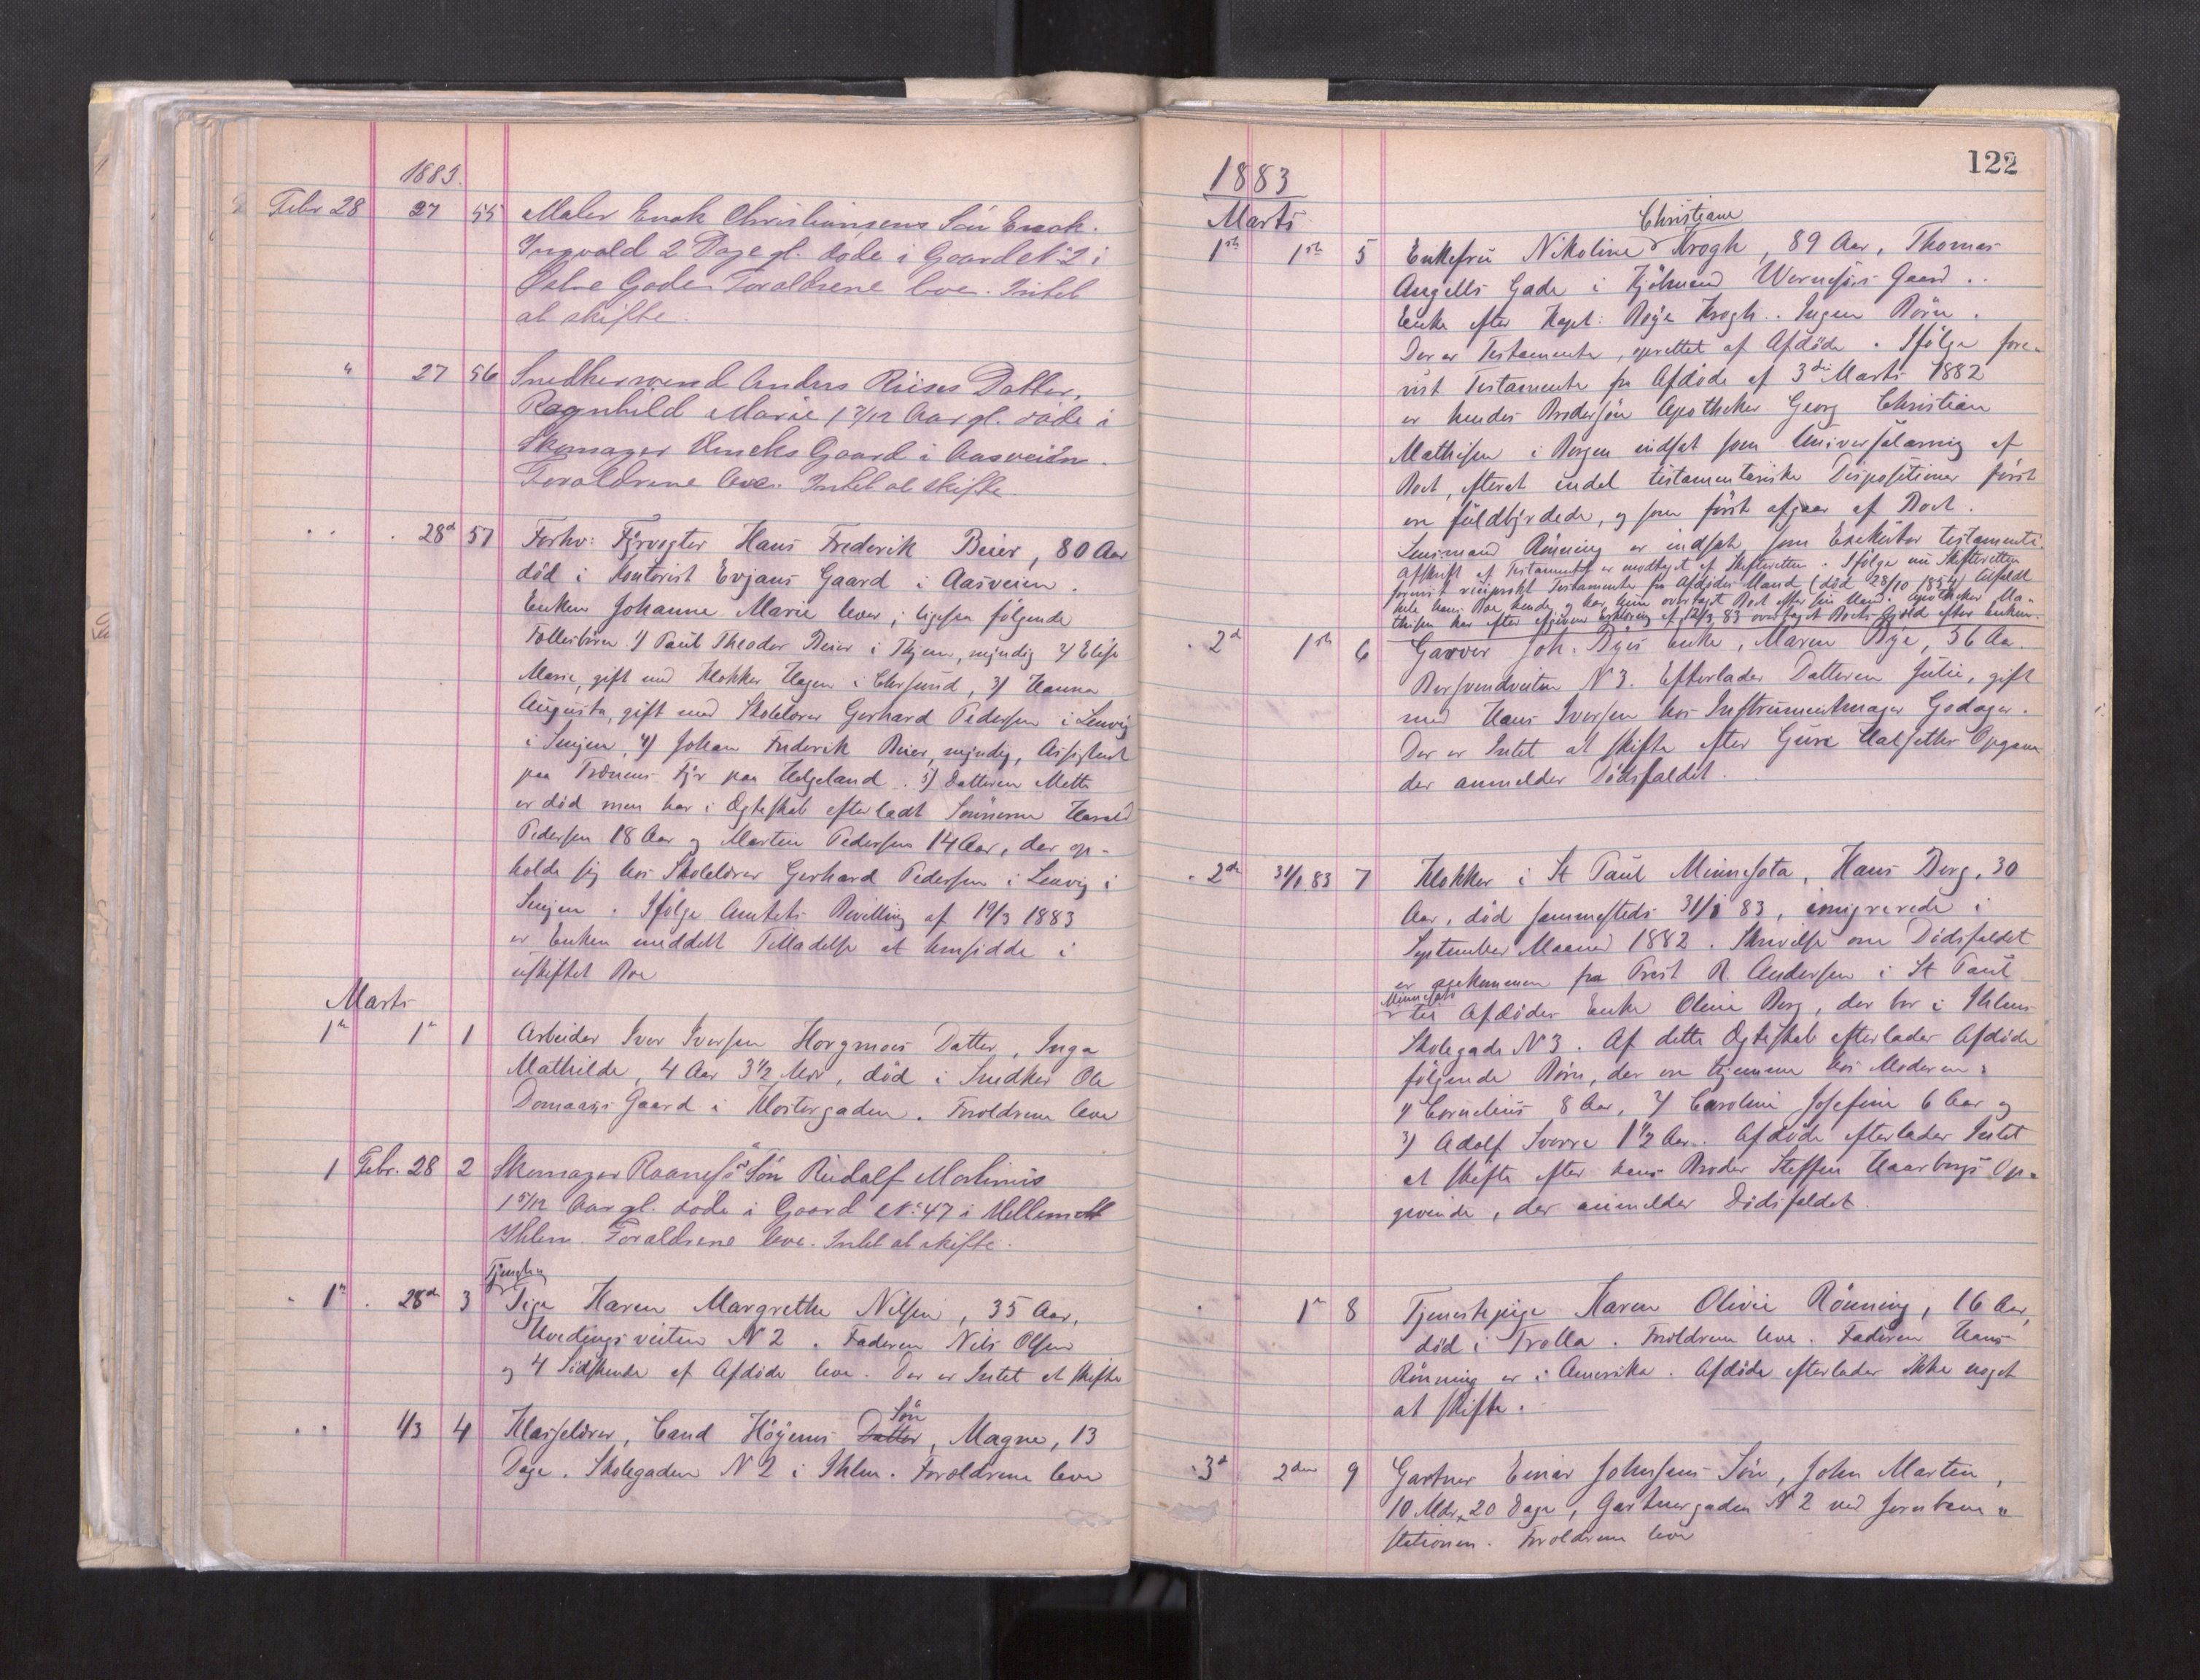 1883.
Febr 28 27 55 Maler Enok Christiansens Sön Enok
Ingvald 2 Dage gl. døde i Gaard No 2 i
Gade Foraldrene leve. Intet
at skifte.
" 27 56 Snedkersvend Anders Riises Datter,
Ragnhild Marie 1 7/12 Aar gl. døde i
Skomager Gaard i Aasveien.
Foraldrene leve. Intet at skifte.
28d 57 Forhv: Fyrvogter Hans Frederik Beier, 80 Aar
död i Kontorist Evjans Gaard i Aasveien.
Enken Johanne Marie lever, ligesaa følgende
Fællesbørn 1) Paul Theodor Beier i Hjem, myndig 2) Elise
Marie, gift med Klokker Hagen i, 3) Hanna
Augusta, gift med Skolelærer Gerhard Pedersen i Lenvig
i Senjen, 4) Johan Frederik Beier, myndig, Assistent
paa Trænens Fyr paa Helgeland. 5) Datteren Mette
er død men har i Ægteskab efterladt Sønnerne Harald
Pedersen 18 Aar og Martin Pedersen 14 Aar, der op-
holde sig hos Skolelærer Gerhard Pedersen i Lenvig i
Senjen. Ifølge Amtets Bevilling af 19/3 1883
er Enken meddelt Tilladelse at hensidde i
uskiftet Boe
Marts
1ste 1ste 1 Arbeider Iver Iversen Horgmoes Datter, Inga
Mathilde, 4 Aar 3 1/2 Mdr, död i Snedker Ole
Domaas's Gaard i Klostergaden. Forældrene leve
1 Febr. 28 2 Skomager Raanesø's Sön Rudolf Martinus
1 5/12 Aar gl. døde i Gaard No 47 i Mellem
Ihlen. Foraldrene leve. Intet at skifte.
Tjeneste
1ste 28de 3 Pige Karen Margrethe Nilsen, 35 Aar,
Hvedingsveiten N 2. Faderen Nils Olsen
og 4 Sødskende af Afdøde leve. Der er Intet at skifte
Sön
1/3 4 Klasselærer, Cand Höyems Datter, Magne, 13
Dage. Skolegaden N 2 i Ihlen. Forældrene leve
122
1883
Marts
Christiane
1ste 1ste 5 Enkefru Nikoline Krogh, 89 Aar, Thomas
Angells Gade i Kjöbmand Gaard..
Enke efter Kapt: Bøye Krogh. Ingen Börn.
Der er Testamente, oprettet af Afdöde. Ifölge fore-
vist Testamente fra Afdöde af 3die Marts 1882
er hendes Brodersön Apotheker Georg Christian
Mathisen i Bergen indsat som Universalarving af
Boet, efterat endel testamentariske Dispositioner först
ere fuldbyrdede, og som först afgaar af Boet.
Lensmand Rönning er indsat som Exekutor testamenti.
Afskrift af Testamentet er modtaget af Skifteretten. Ifölge en Skifteretten
forevist reciprokt Testamente fra Afdödes Mand (död 28/10 1854) tilfaldt
hele hans Boe hende, og har hun overtaget Boet efter sin Mand. Apotheker Ma-
thisen har efter afgiven Erklæring af 12/3 83 overtaget Boets Gjæld efter Enken.
2d 1ste 6 Garver Joh. Byes Enke, Maren Bye, 56 Aar.
Borsvendveiten N 3. Efterlader Datteren Julie, gift
med Hans Iversen hos Instrumentmager Godager.
Der er Intet at skifte efter Guri Halsetter Opgave
der anmelder Dödsfaldet.
2de 31/1 83 7 Klokker i St Paul Minnesota, Hans Berg, 30
Aar, död sammesteds 31/1 83, emigrerede i
September Maaned 1882. Skrivelse om Dödsfaldet
er indkommen fra Prest R. Andersen i St Paul
Minnesota
til Afdödes Enke Oline Berg, der bor i Ihlens
Skolegade N 3. Af dette Ægteskab efterlader Afdöde
fölgende Börn, der ere hjemme hos Moderen:
1) Cornelius 8 Aar, 2) Caroline Josefine 6 Aar og
3) Adolf Sverre 1 1/2 Aar. Afdöde efterlader Intet
at skifte efter hans Broder Steffen Haarbergs Op-
givende, der anmelder Dödsfaldet.
1ste 8 Tjenestepige Karen Olivie Rönning, 16 Aar,
död i Trolla. Forældrene leve. Faderen Hans
Rönning er i Amerika. Afdöde efterlader ikke noget
at skifte.
3d 2den 9 Gartner Einar Johnsens Sön, John Martin,
10 Mdr, 20 Dage, Gartnergaden N 2 ved Jernbane-
stationen. Forældrene leve